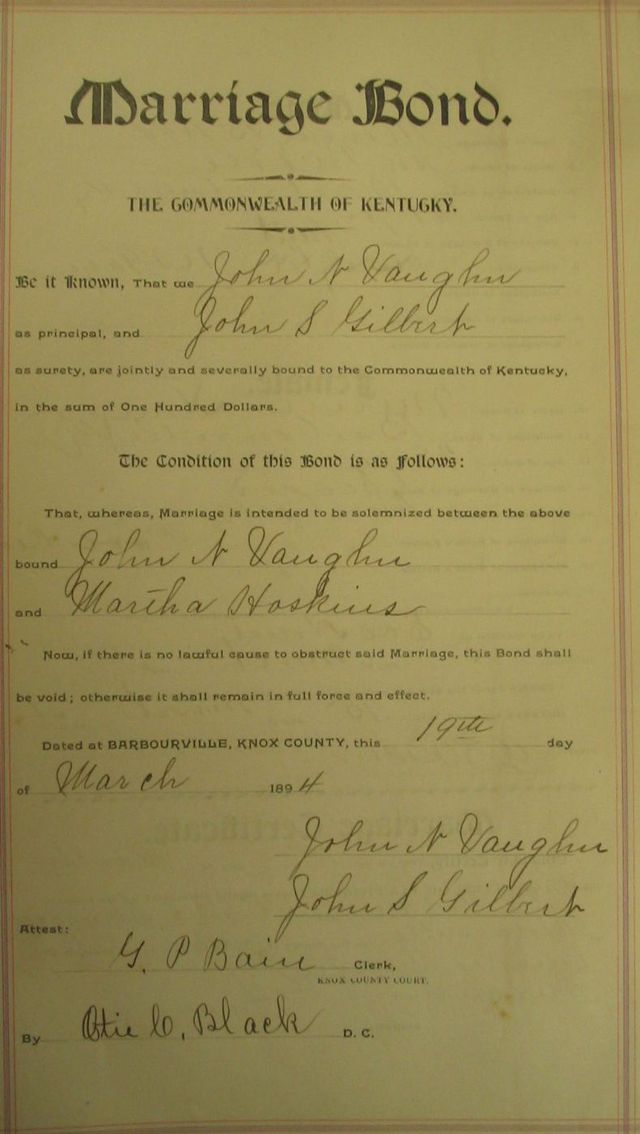 Marriage Bond.
THE COMMONWEALTH OF KENTUCKY.
Be it Known, That we John N Vaughn
as principal, and John S Gilbert
as surety, are jointly and severally bound to the Commonwealth of Kentucky,
in the sum of One Hundred Dollars.
The Condition of this Bond is as Follows:
That, whereas, Marriage is intended to be solemnized between the above
bound John N Vaughn
and Martha Hoskins
Now, if there is no lawful cause to obstruct said Marriage, this Bond shall
be void; otherwise it shall remain in full force and effect.
Dated at BARBOURVILLE, KNOX COUNTY, this 19th day
of March 1894
John N Vaughn
John S Gilbert
Attest:
G. P Bain Clerk,
KNOX COUNTY COURT.
By Otie C. Black D. C.